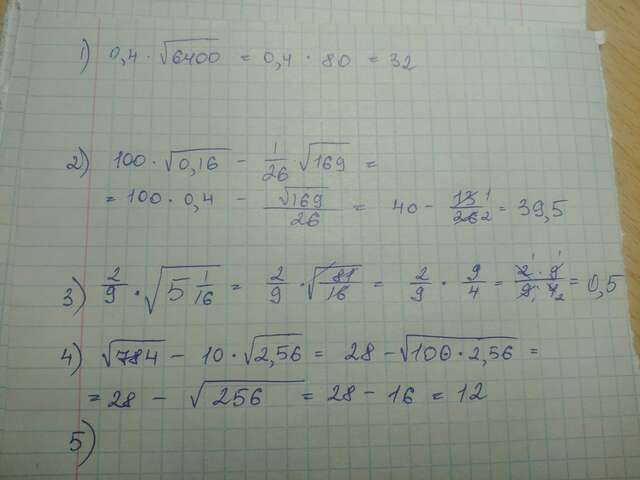 1) 0,4 · √6400 = 0,4 · 80 = 32
2) 100 · √0,16 − 1/26 √169 =
= 100 · 0,4 − √169/26 = 40 − 13/26 1/2 = 39,5
3) 2/9 · √5 1/16 = 2/9 · √81/16 = 2/9 · 9/4 = 2 · 9/9 · 4 1 1/1 2 = 0,5
4) √784 − 10 · √2,56 = 28 − √100 · 2,56 =
= 28 − √256 = 28 − 16 = 12
5)